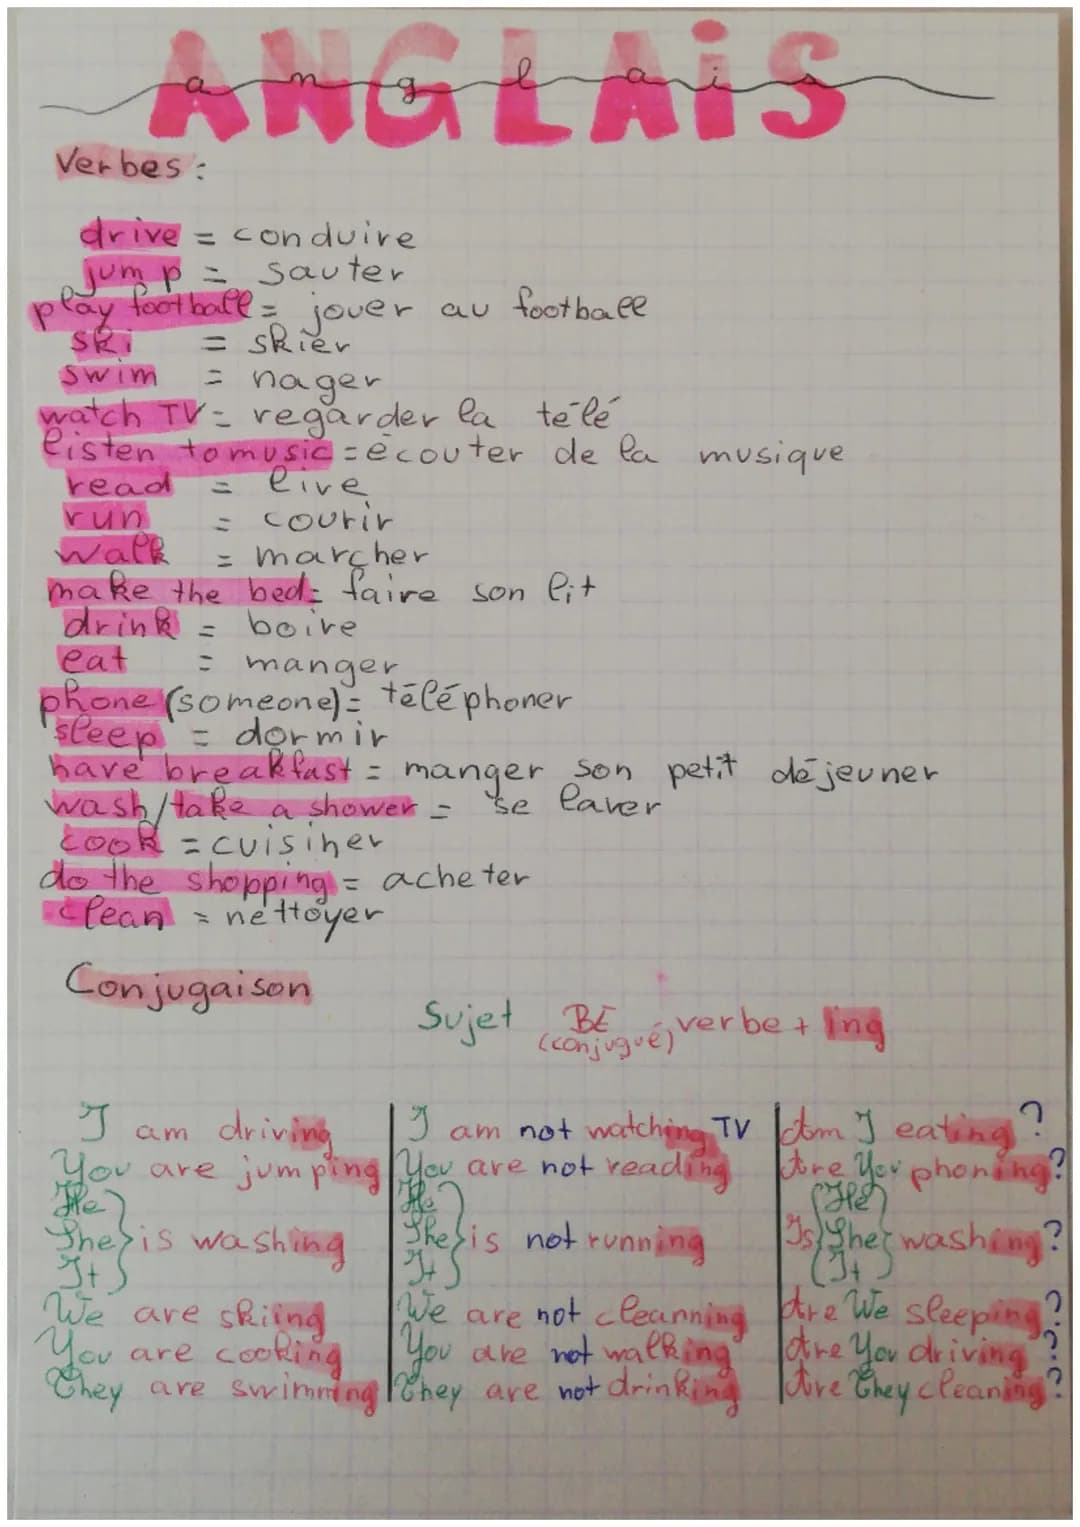 ANGLAIS
anglais
Verbes :
drive = conduire
jump = sauter
play football = jouer au football
ski = skier
swim = nager
watch TV = regarder la télé
listen to music = écouter de la musique
read = lire
run = courir
walk = marcher
make the bed = faire son lit
drink = boire
eat = manger
phone (someone) = téléphoner
sleep = dormir
have breakfast = manger son petit déjeuner
wash/take a shower = se laver
cook = cuisiner
do the shopping = acheter
clean = nettoyer
Conjugaison
Sujet BE verbe + ing
(conjugué)
I am driving
You are jumping
He
She } is washing
It
We are skiing
You are cooking
They are swimming
I am not watching TV
You are not reading
He
She } is not running
It
We are not cleanning
You are not walking
They are not drinking
Am I eating ?
Are You phoning ?
He
Is { She } washing ?
It
Are We sleeping ?
Are You driving ?
Are They cleaning ?